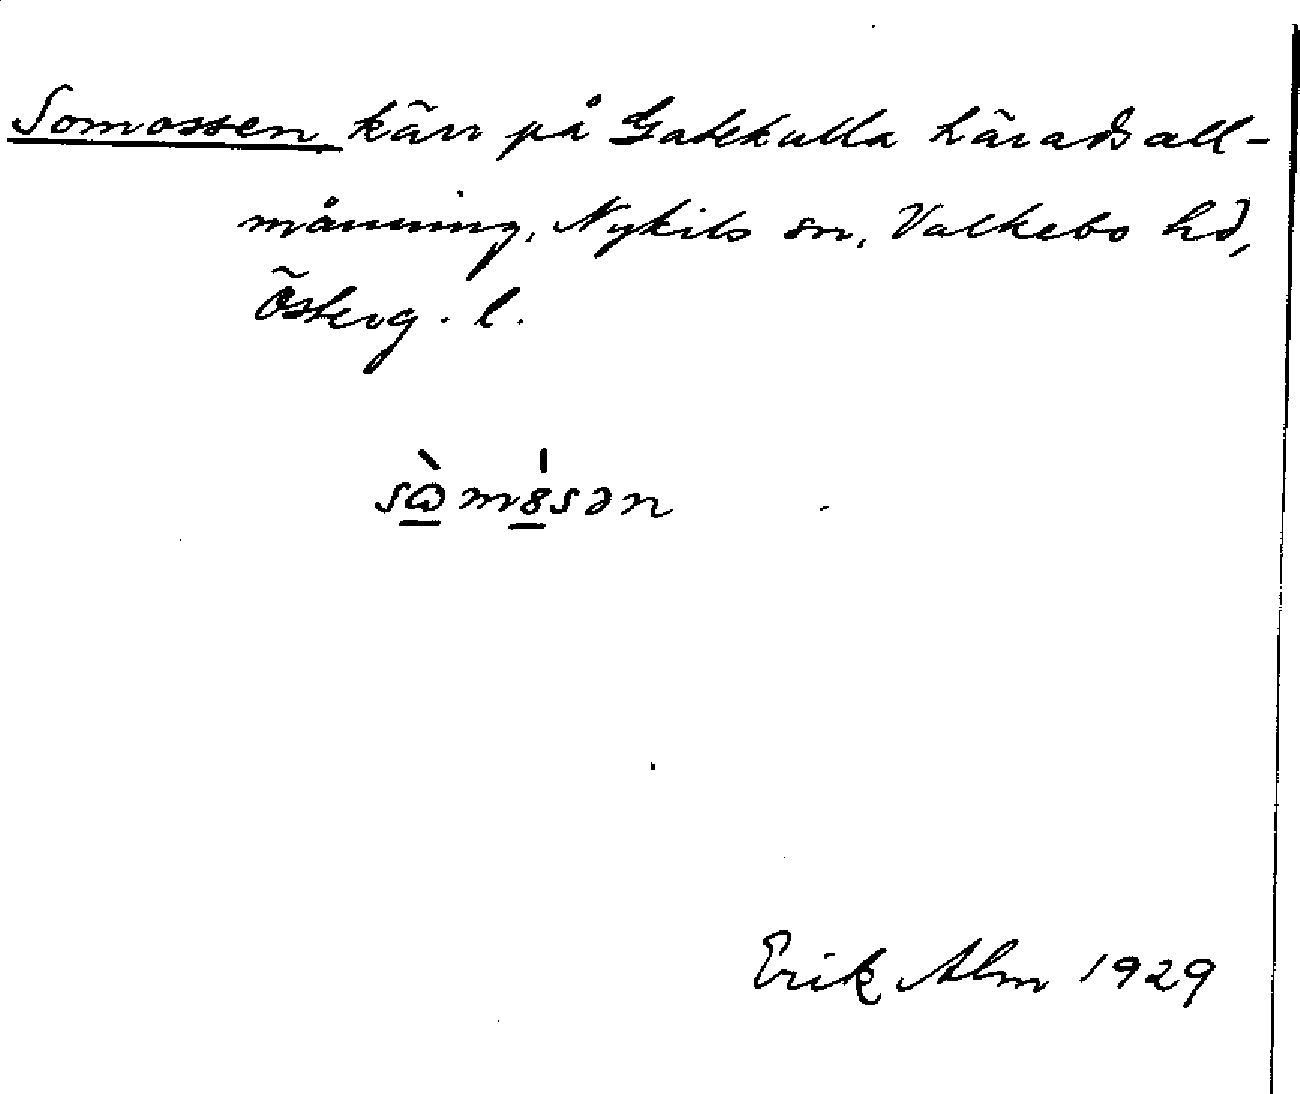 Somossen kärr på Gatekulla häradsall-
männing, Nykils sn, Valkebo hd,
Österg. l.
Erik Alm 1929